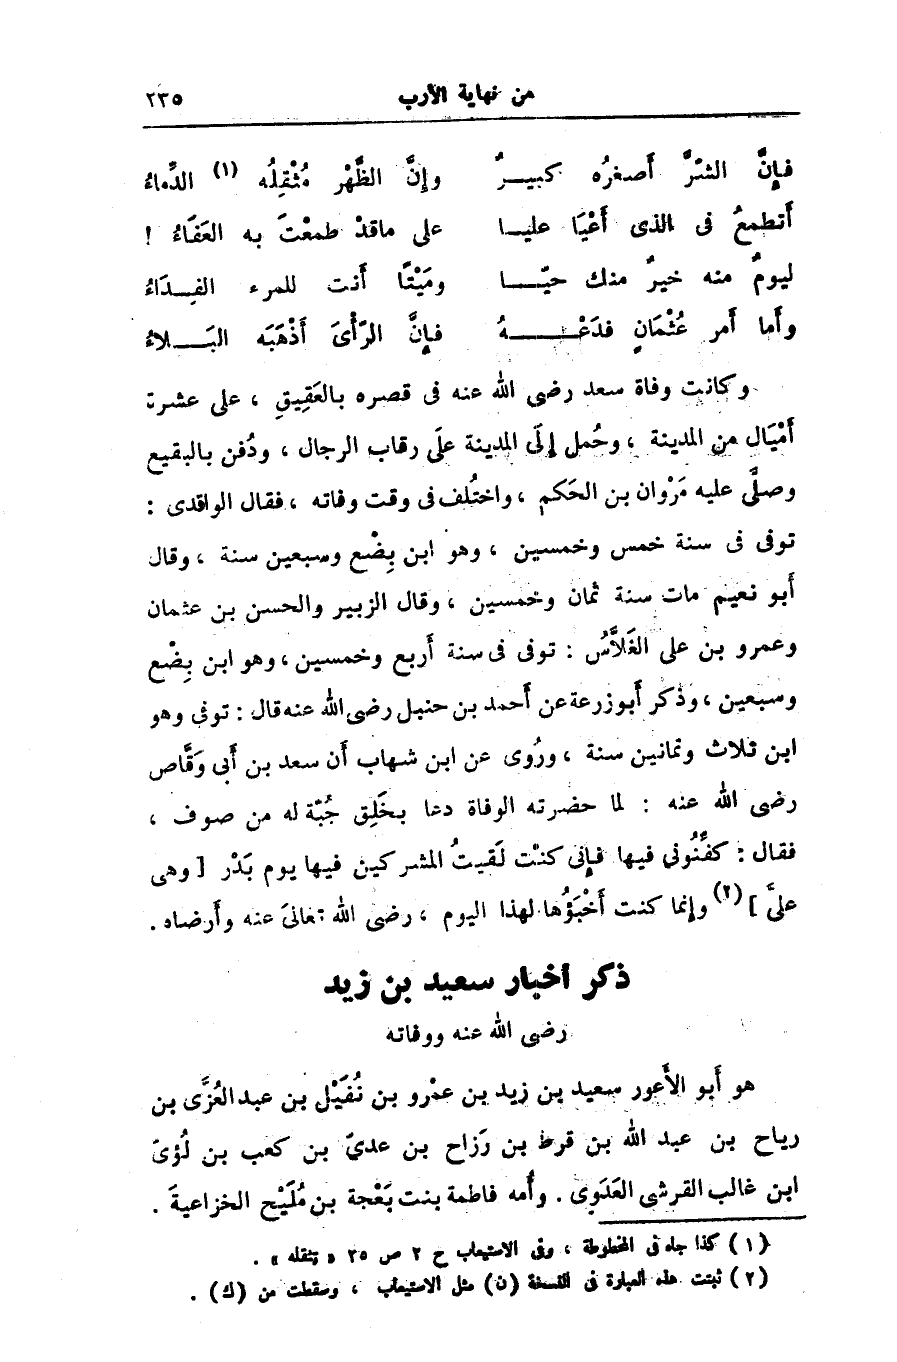 من نهاية الأرب ٢٣٥
فإنَّ الشرَّ أصغرُه كبيـــرٌ وإنَّ الظَّهْر مُثْقِلُه (١) الدِّماءُ
أتطمعُ فى الذى أَعْيَا عليـا على ماقدْ طمعْتَ به العَفَاءُ !
ليومٌ منه خيرٌ منك حيّـــا ومَيْتًا أنت للمرء الفِــدَاءُ
وأما أمر عُثْمَانٍ فدَعْـــــهُ فإنَّ الرَّأْىَ أَذْهَبَه البَــــلاءُ
وكانت وفاة سعد رضى الله عنه فى قصره بالعَقِيقِ ، على عشرة
أَمْيَال من المدينة ، وحُمل إلى المدينة على رقاب الرجال ، ودُفن بالبقيع
وصلَّى عليه مَرْوان بن الحَكم ، واختُلف فى وقت وفاته ، فقال الواقدى :
توفى فى سنة خمس وخمسين ، وهو ابن بِضْع وسبعين سنة ، وقال
أبو نعيم مات سنة ثمان وخمسين ، وقال الزبير والحسن بن عثمان
وعمرو بن على الغَلاَّسُ : توفى فى سنة أربع وخمسين ، وهو ابن بِضْع
وسبعين ، وذكر أبو زرعة عن أحمد بن حنبل رضى الله عنه قال : توفى وهو
ابن ثلاث وثمانين سنة ، ورُوى عن ابن شهاب أن سعد بن أبى وَقَّاص
رضى الله عنه : لما حضرته الوفاة دعا بخَلِق جُبّة له من صوف ،
فقال : كفِّنُونى فيها فإنى كنْت لَقيتُ المشركين فيها يوم بَدْر [ وهى
علىَّ ] (٢) وإنما كنت أَخْبَؤُها لهذا اليوم ، رضى الله تعالى عنه وأرضاه .
ذكر أخبار سعيد بن زيد
رضى الله عنه ووفاته
هو أبو الأَعور سعيد بن زيد بن عمْرو بن نُفَيْل بن عبد العُزَّى بن
رياح بن عبد الله بن قرط بن رَزاح بن عدىّ بن كعب بن لُؤىّ
ابن غالب القرشى العَدَوِى . وأُمه فاطمة بنت بَعْجة بن مُلَيْح الخزاعية .
(١) كذا جاء فى المخطوطة ، وفى الاستيعاب ج ٢ ص ٢٥ « تثقله » .
(٢) ثبتت هذه العبارة فى النسخة (ن) مثل الاستيعاب ، وسقطت من (ك) .